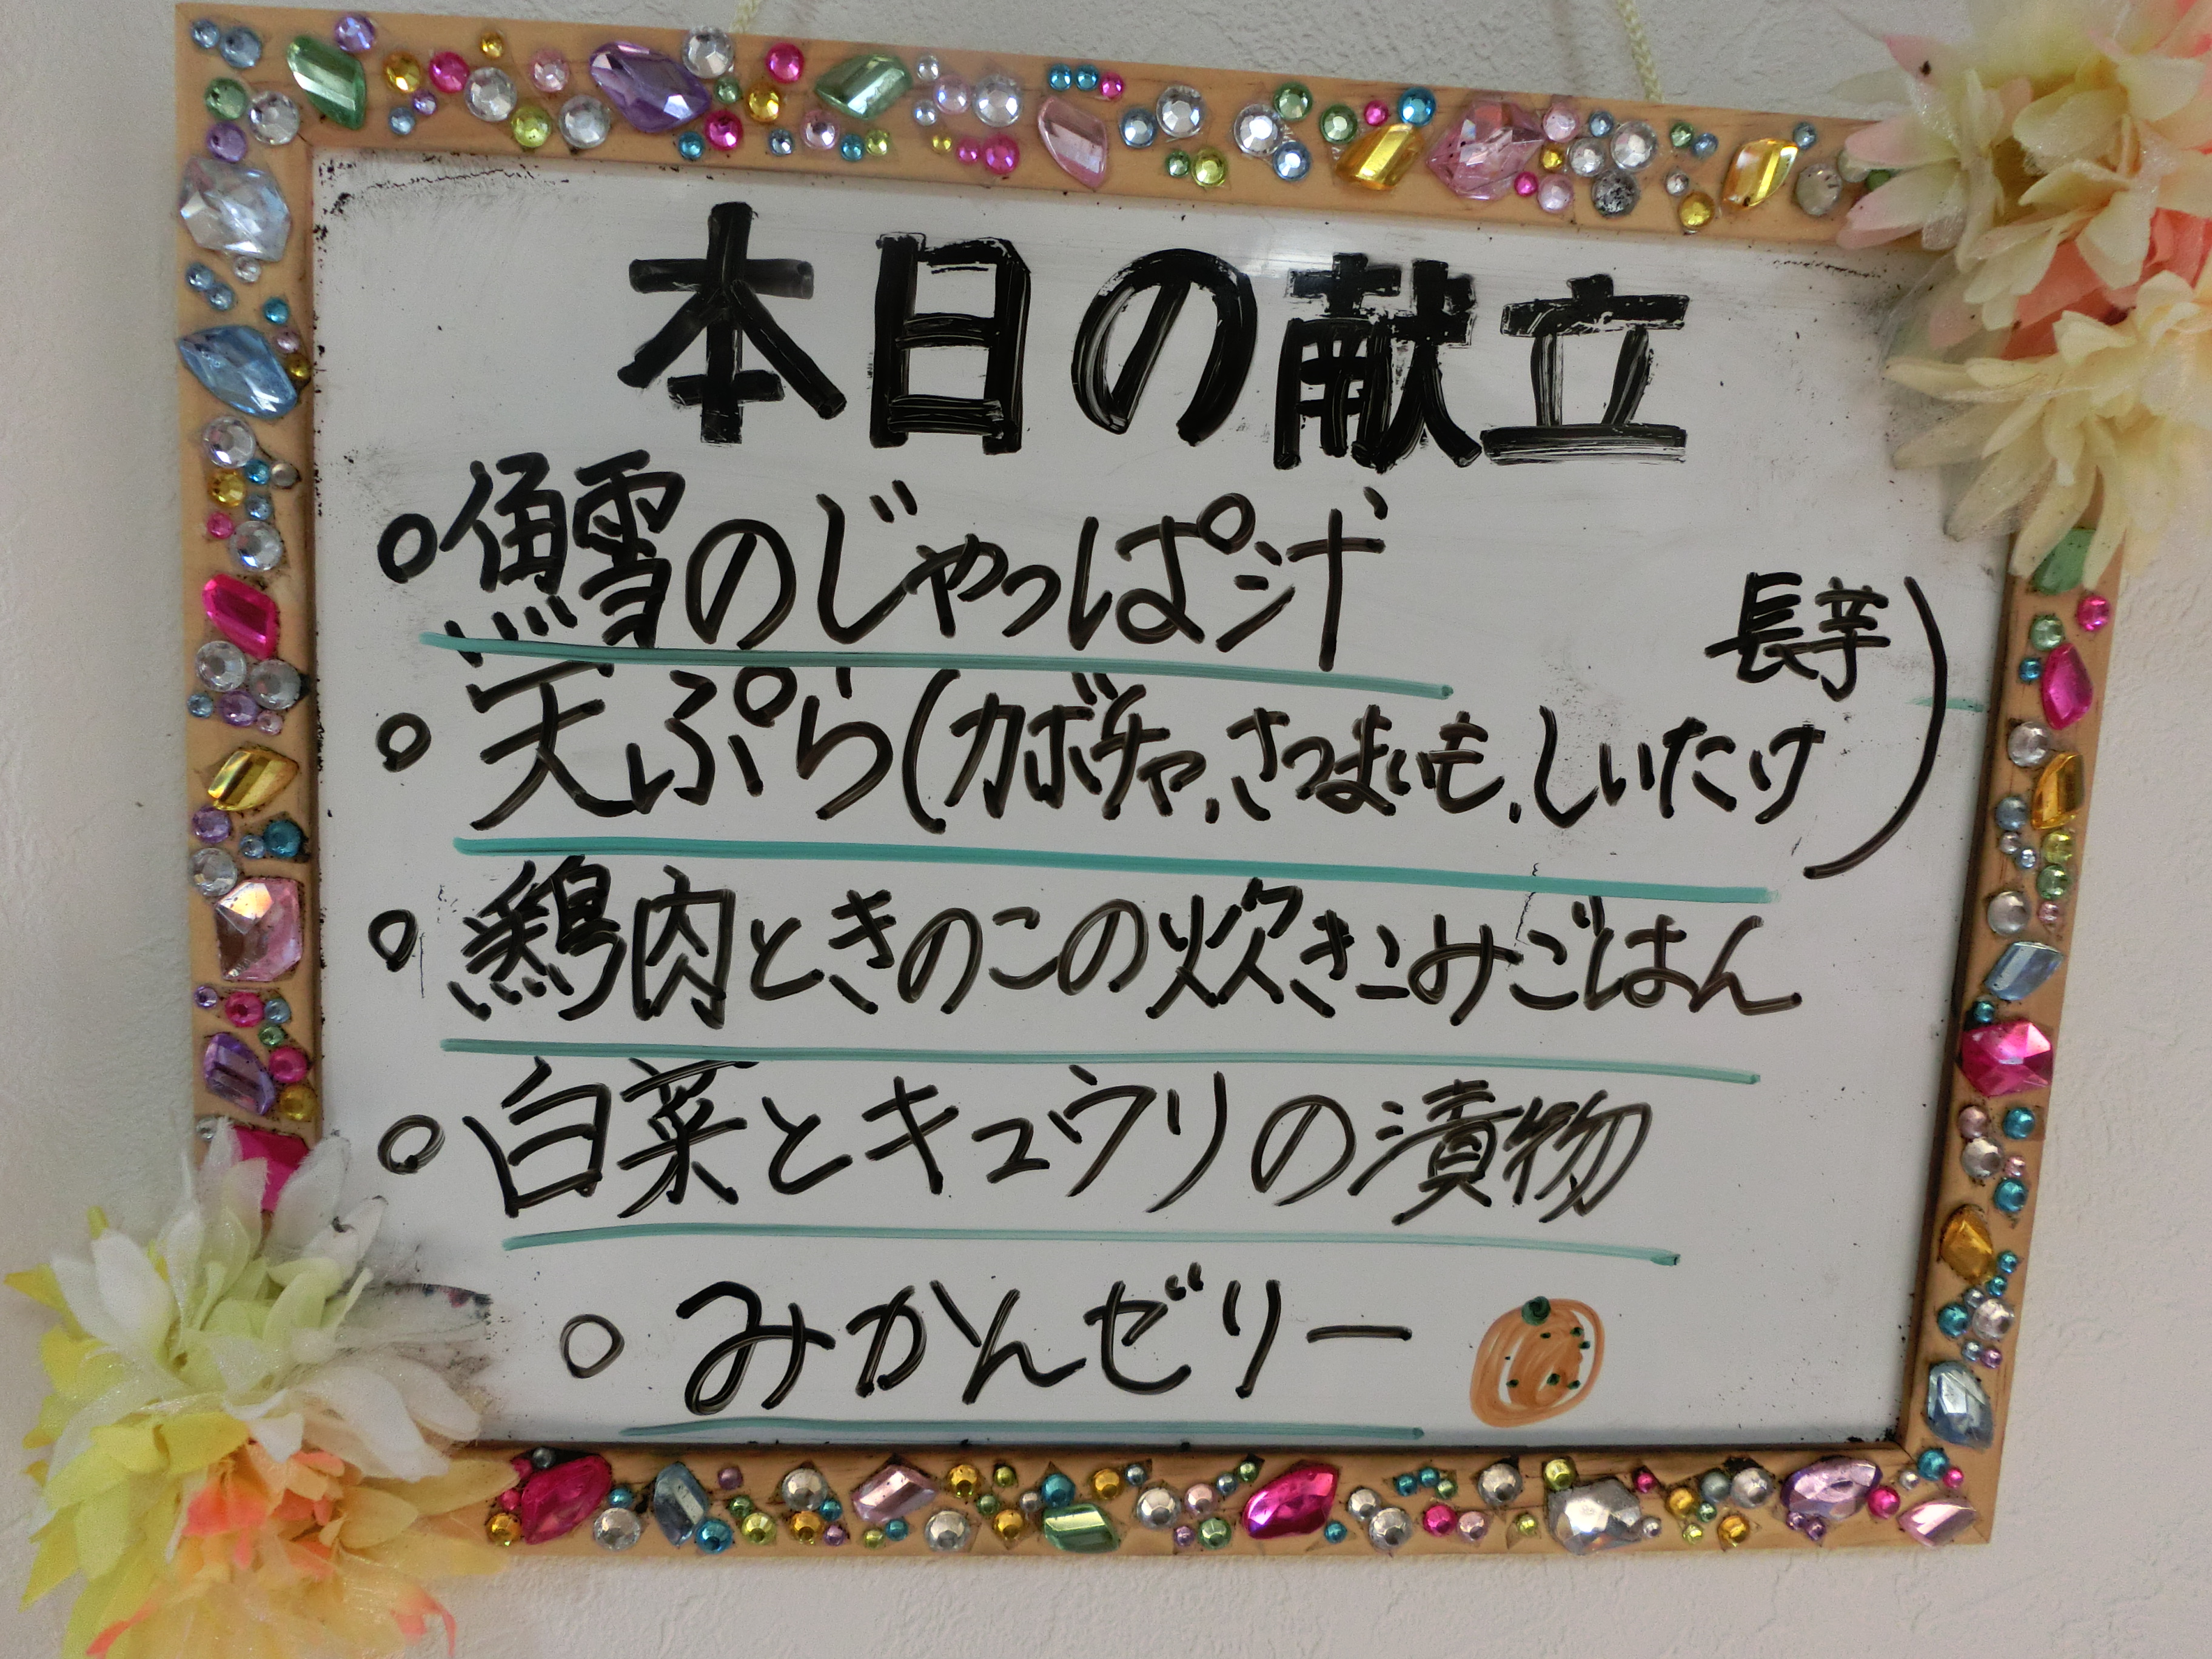 本日の献立
○鱈のじゃっぱ汁
○天ぷら(カボチャ、さつまいも、しいたけ
長芋)
○鶏肉ときのこの炊きこみごはん
○白菜とキュウリの漬物
○みかんゼリー